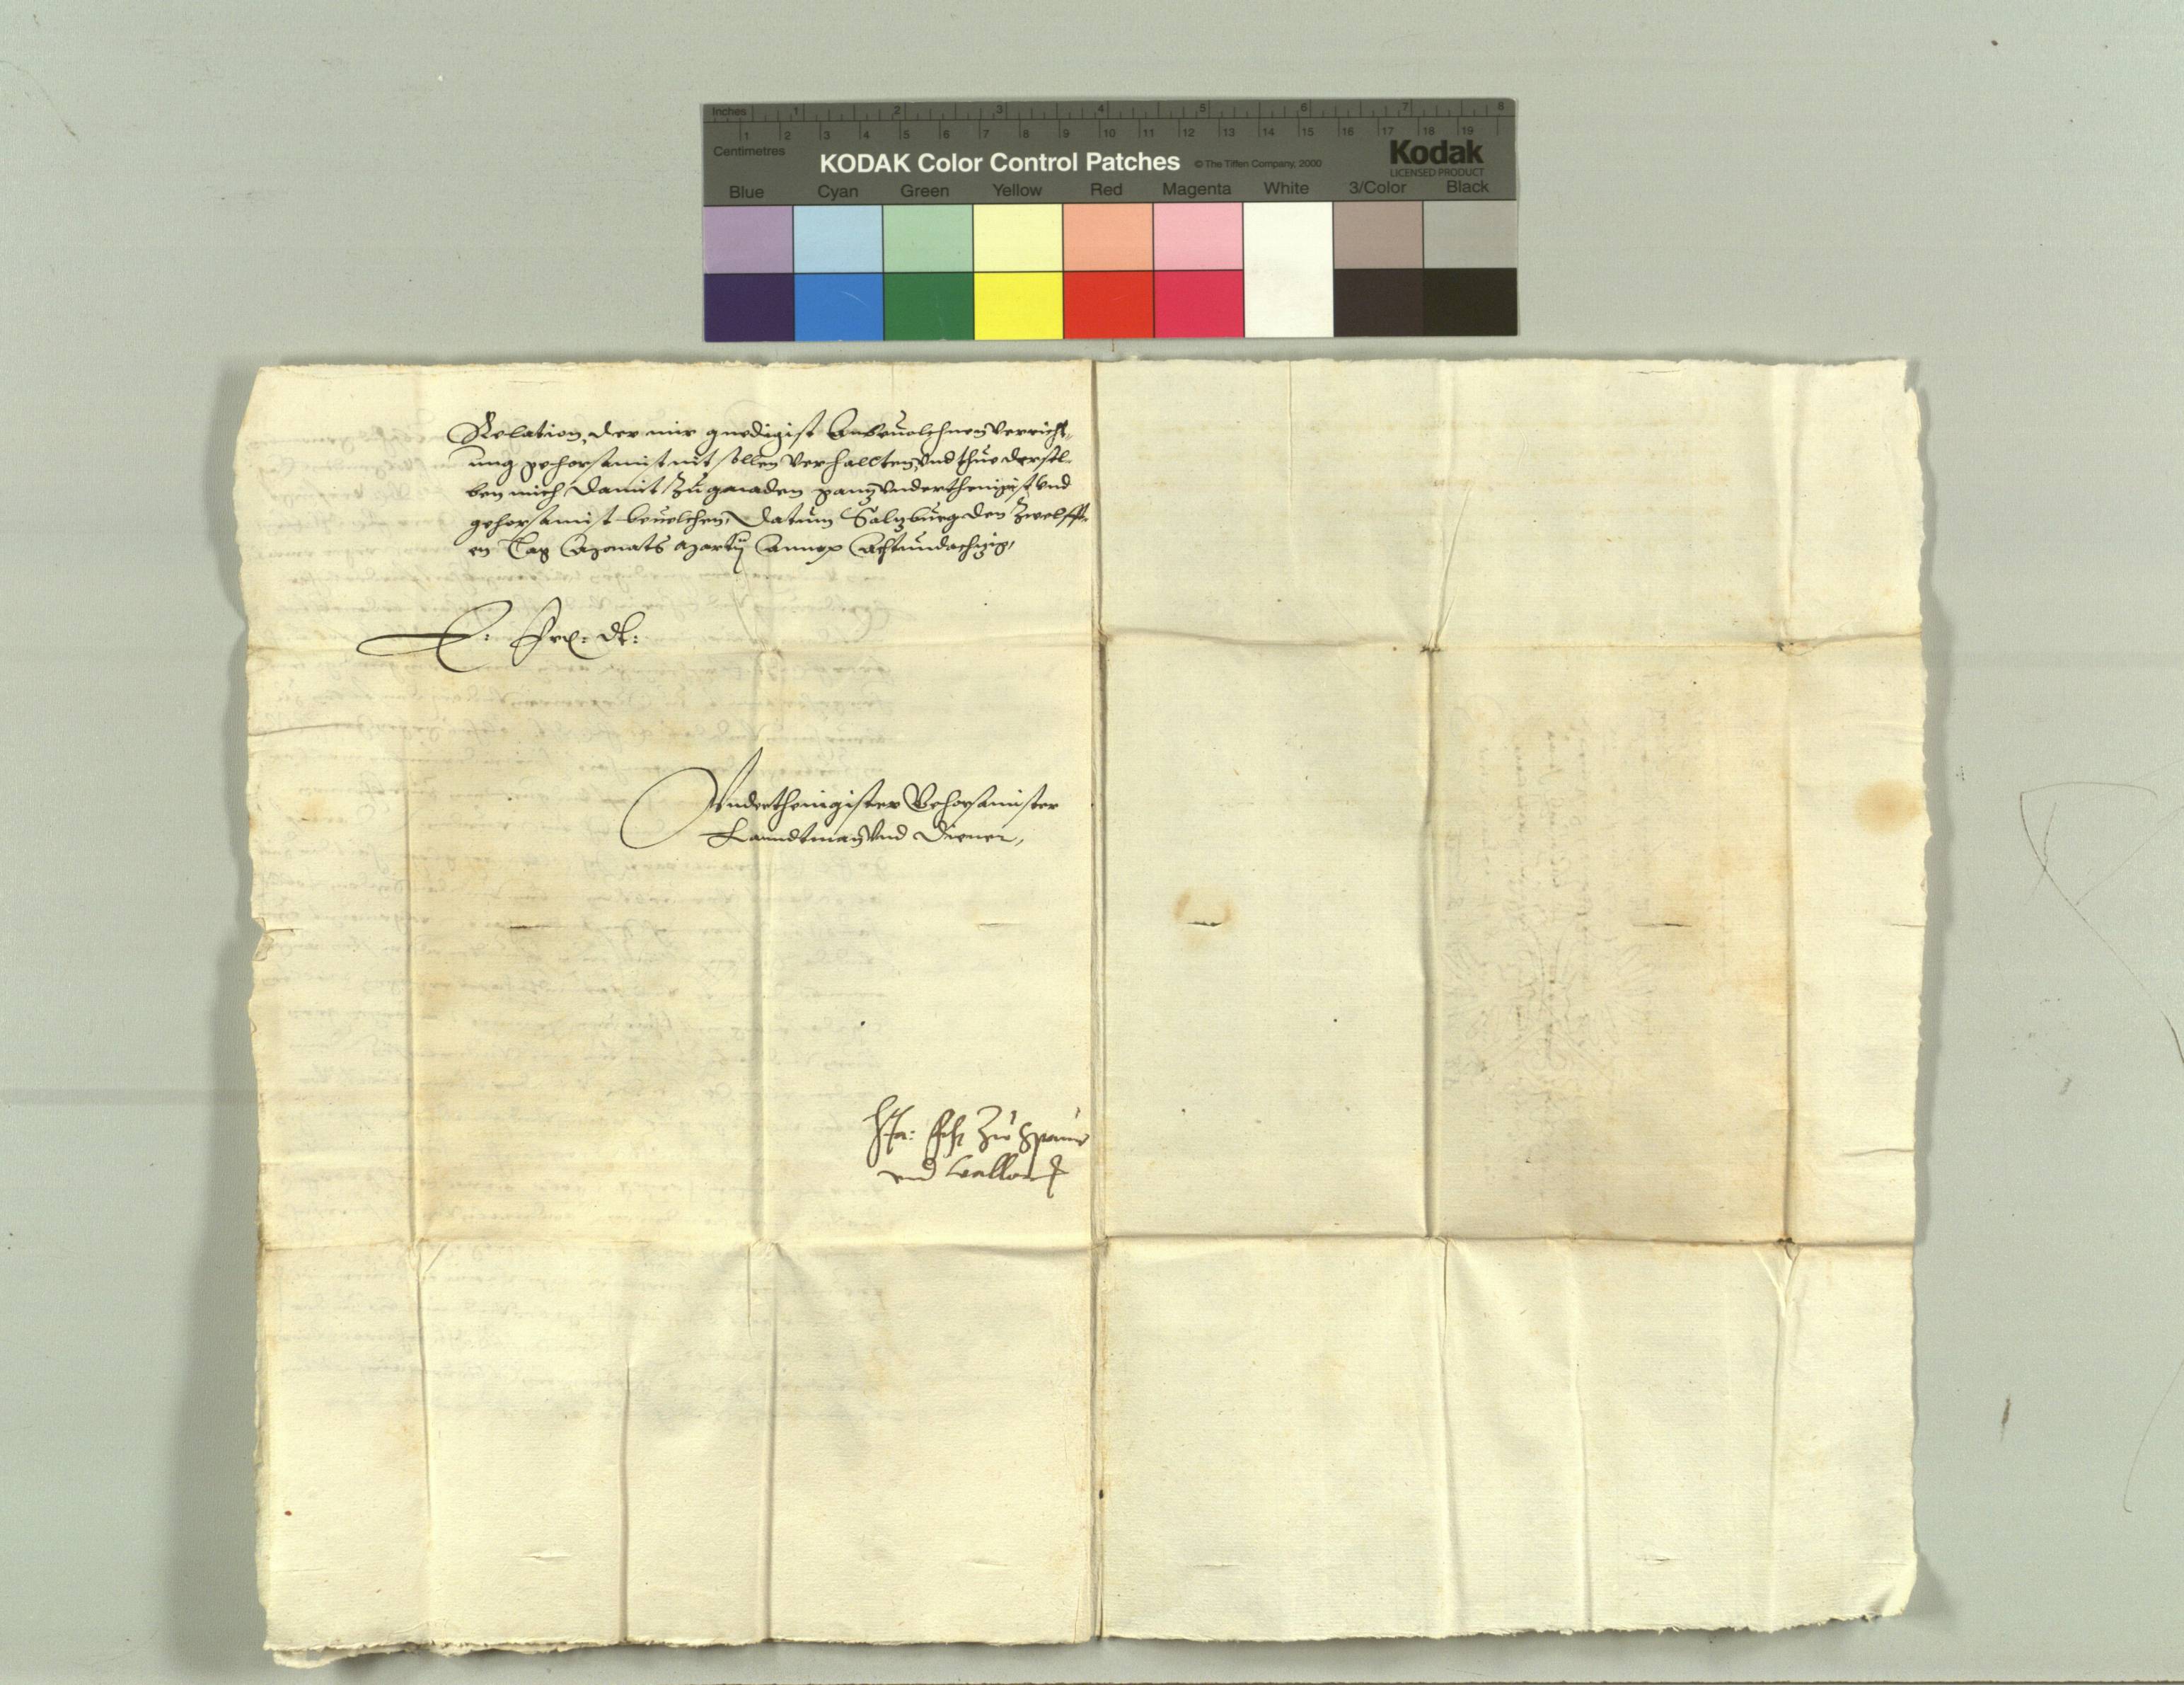 Inches 1 2 3 4 5 6 7 8
1 2 3 4 5 6 7 8 9 10 11 12 13 14 15 16 17 18 19
Centimetres
KODAK Color Control Patches © The Tiffen Company, 2000 Kodak
LICENSED PRODUCT
Blue Cyan Green Yellow Red Magenta White 3/Color Black
Relation, der mir gnedigist Anbeuolchnen Verricht,,
ung gehorsamist nit sollen verhallten, vnd thue dersel,,
ben mich damit zu gnaden ganz vnderthenigist vnd
gehorsamist beuelchen, Datum Salzburg den Zwelfft,,
en Tag Monats Martij Anno Achtundachzig,
E: Frl: dt:
Vnderthenigister Gehorsamister
Lanndtman vnd Diener,
zu Spaur
vnd Vallor